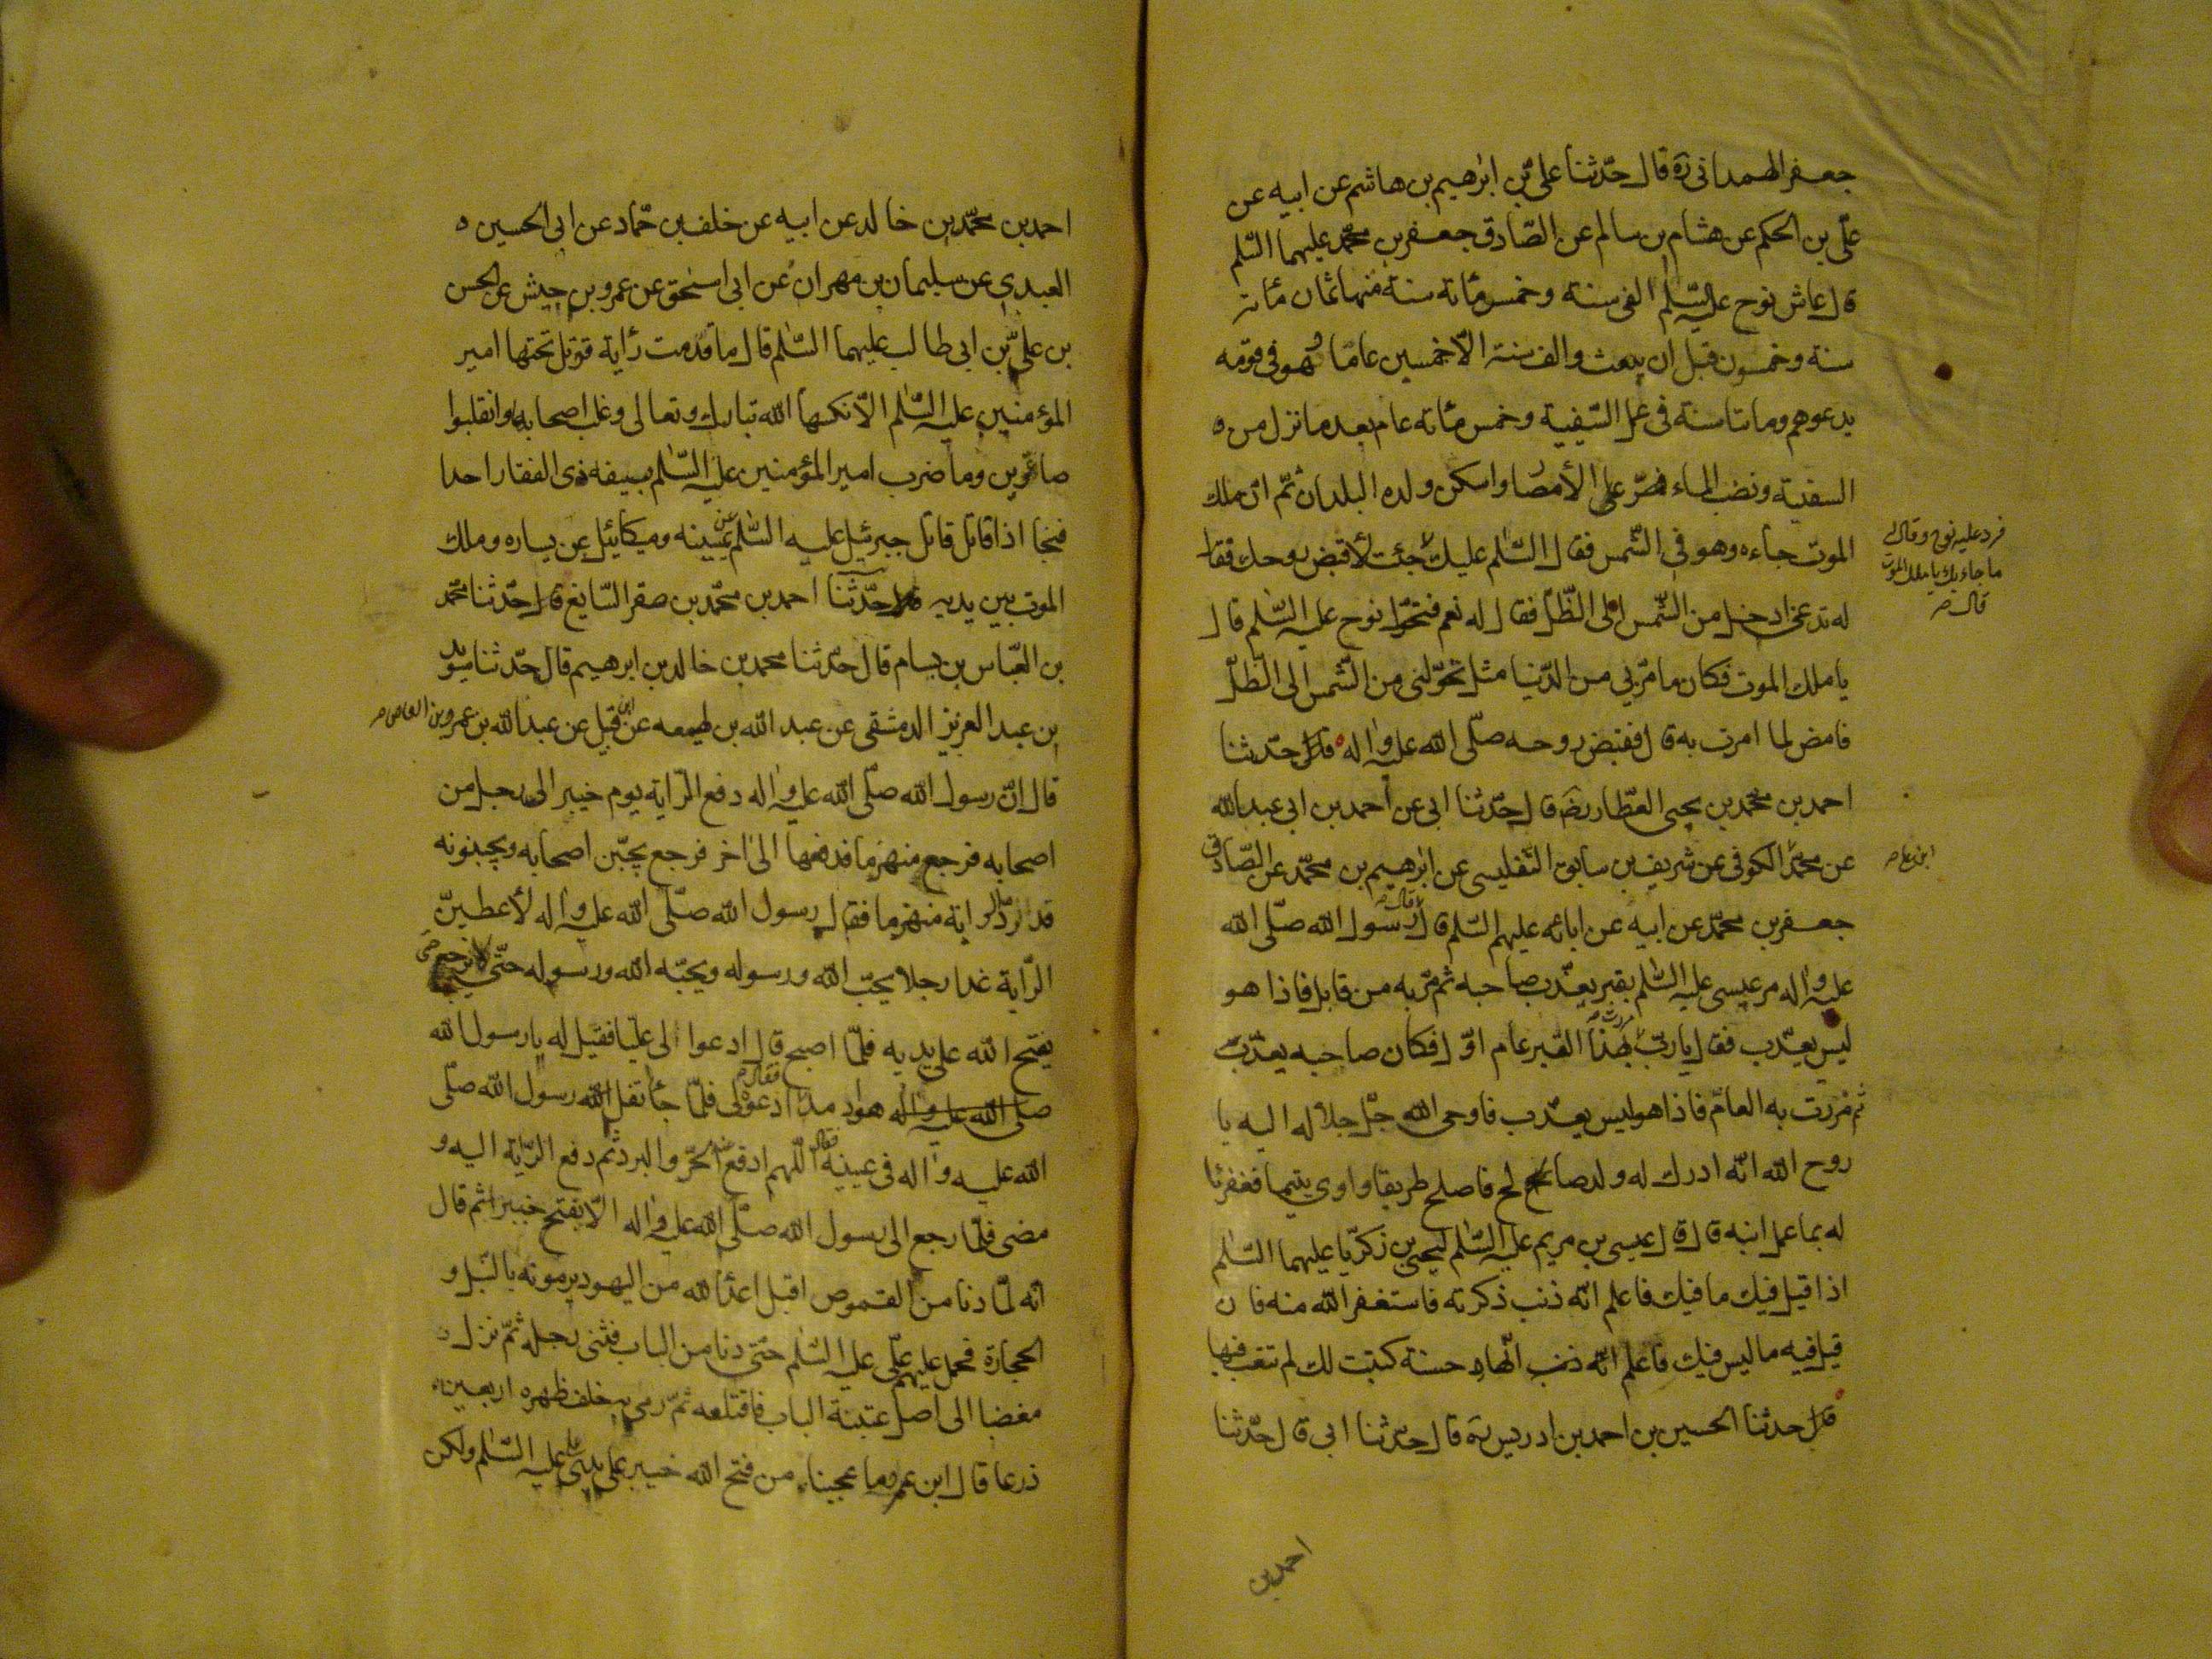 جعفر الهمداني ره قال حدّثنا علي بن ابرهيم بن هاشم عن ابيه عن
علي بن الحكم عن هشام بن سالم عن الصّادق جعفر بن محمّد عليهما السّلم
قال عاش نوح عليه السّلم الفى سنة وخمس مائة سنة منها ثمان مائة
سنة وخمسون قبل ان يبعث والف سنة الّا خمسين عامًا وهو فى قومه
يدعوهم ومائتا سنة فى عمل السّفينة وخمس مائة عام بعد ما نزل من
السفينة ونضب الماء فمصّر على الأمصار واسكن ولده البلدان ثمّ انّ ملك
الموت جاءه وهو فى الشّمس فقال السّلم عليك جئت لأقبض روحك فقال
فردّ عليه نوح وقال له
ما جاء بك يا ملك الموت
قال صح
له تدعنى ادخل من الشّمس الى الظّلّ فقال له نعم فتحوّل نوح عليه السّلم قال
يا ملك الموت فكان ما مرّ بي من الدّنيا مثل تحوّلى من الشّمس الى الظّلّ
فامض لما امرت به قال فقبض روحه صلّى الله عليه واله قال حدّثنا
احمد بن محمّد بن يحيى العطّار رضه قال حدّثنا ابى عن احمد بن ابى عبد الله
عن محمّد الكوفى عن شريف بن سابق التّفليسى عن ابرهيم بن محمّد عن الصّادق
ابن على صح
جعفر بن محمّد عن ابيه عن ابائه عليهم السّلم قال قال رسول الله صلّى الله
عليه واله مر عيسى عليه السّلم بقبر يعذّب صاحبه ثم مرّ به من قابل فاذا هو
ليس يعذّب فقال يا ربّ مررت بهذا القبر عام اوّل فكان صاحبه يعذّب
ثم مررت به العام فاذا هو ليس يعذّب فاوحى الله جلّ جلاله اليه يا
روح الله انّه ادرك له ولد صالح فاصلح طريقا واوى يتيما فغفرت
له بما عمل ابنه قال قال عيسى بن مريم عليه السّلم ليحيى بن زكريّا عليهما السّلم
اذا قيل فيك ما فيك فاعلم انّه ذنب ذكرته فاستغفر الله منه فان
قيل فيه ما ليس فيك فاعلم انّها حسنة كتبت لك لم تتعب فيها
قال حدثنا الحسين بن احمد بن ادريس ره قال حدّثنا ابى قال حدّثنا
احمد بن
احمد بن محمّد بن خالد عن ابيه عن خلف بن حمّاد عن ابى الحسين
العبدى عن سليمان بن مهران عن ابى اسحق عن عمرو بن حبيش عن الحسن
بن علي بن ابى طالب عليهما السّلم قال ما قدمت راية قوتل تحتها امير
المؤمنين عليه السّلم الّا نكسها الله تبارك وتعالى وغلب اصحابها وانقلبوا
صاغرين وما ضرب امير المؤمنين عليه السّلم بسيفه ذى الفقار احدا
فنجا اذا قاتل قاتل جبرئيل عليه السّلم عن يمينه وميكائيل عن يساره وملك
الموت بين يديه قال حدّثنا احمد بن محمّد بن صقر السّايغ قال حدّثنا محمّد
بن العبّاس بن بسام قال حدّثنا محمد بن خالد بن ابرهيم قال حدّثنا سويد
بن عبد العزيز الدمشقى عن عبد الله بن لهيعه عن ابن قبل عن عبد الله بن عمرو بن العاص صح
قال انّ رسول الله صلّى الله عليه واله دفع الرّاية يوم خيبر الى رجل من
اصحابه فرجع منهزما فدفعها الى اخر فرجع يجبّن اصحابه ويجبنونه
قد ردّ الراية منهزما فقال رسول الله صلّى الله عليه واله لأعطينّ
الرّاية غدا رجلا يحبّ الله ورسوله ويحبّه الله ورسوله لا يرجع حتّى
يفتح الله على يديه فلمّا اصبح قال ادعوا الى عليّا فقيل له يا رسول الله
هو رمد فقال صح ادعوه لى فلمّا جاء تفل رسول الله صلّى
الله عليه واله فى عينيه فقال اللّهم ادفع عنه الحرّ والبرد ثم دفع الرّاية اليه و
مضى فلمّا رجع الى رسول الله صلّى الله عليه واله الّا بفتح خيبر ثم قال
انه لمّا دنا من القموص اقبل اعداء الله من اليهود يرمونه بالنّبل و
الحجارة فحمل عليهم علّى عليه السّلم حتى دنا من الباب فثنى رجله ثمّ نزل
مغضبا الى اصل عتبة الباب فاقتلعه ثمّ رمى به خلف ظهره اربعين
ذرعا قال ابن عمرو ما عجبنا من فتح الله خيبر على يدى على عليه السّلم ولكن